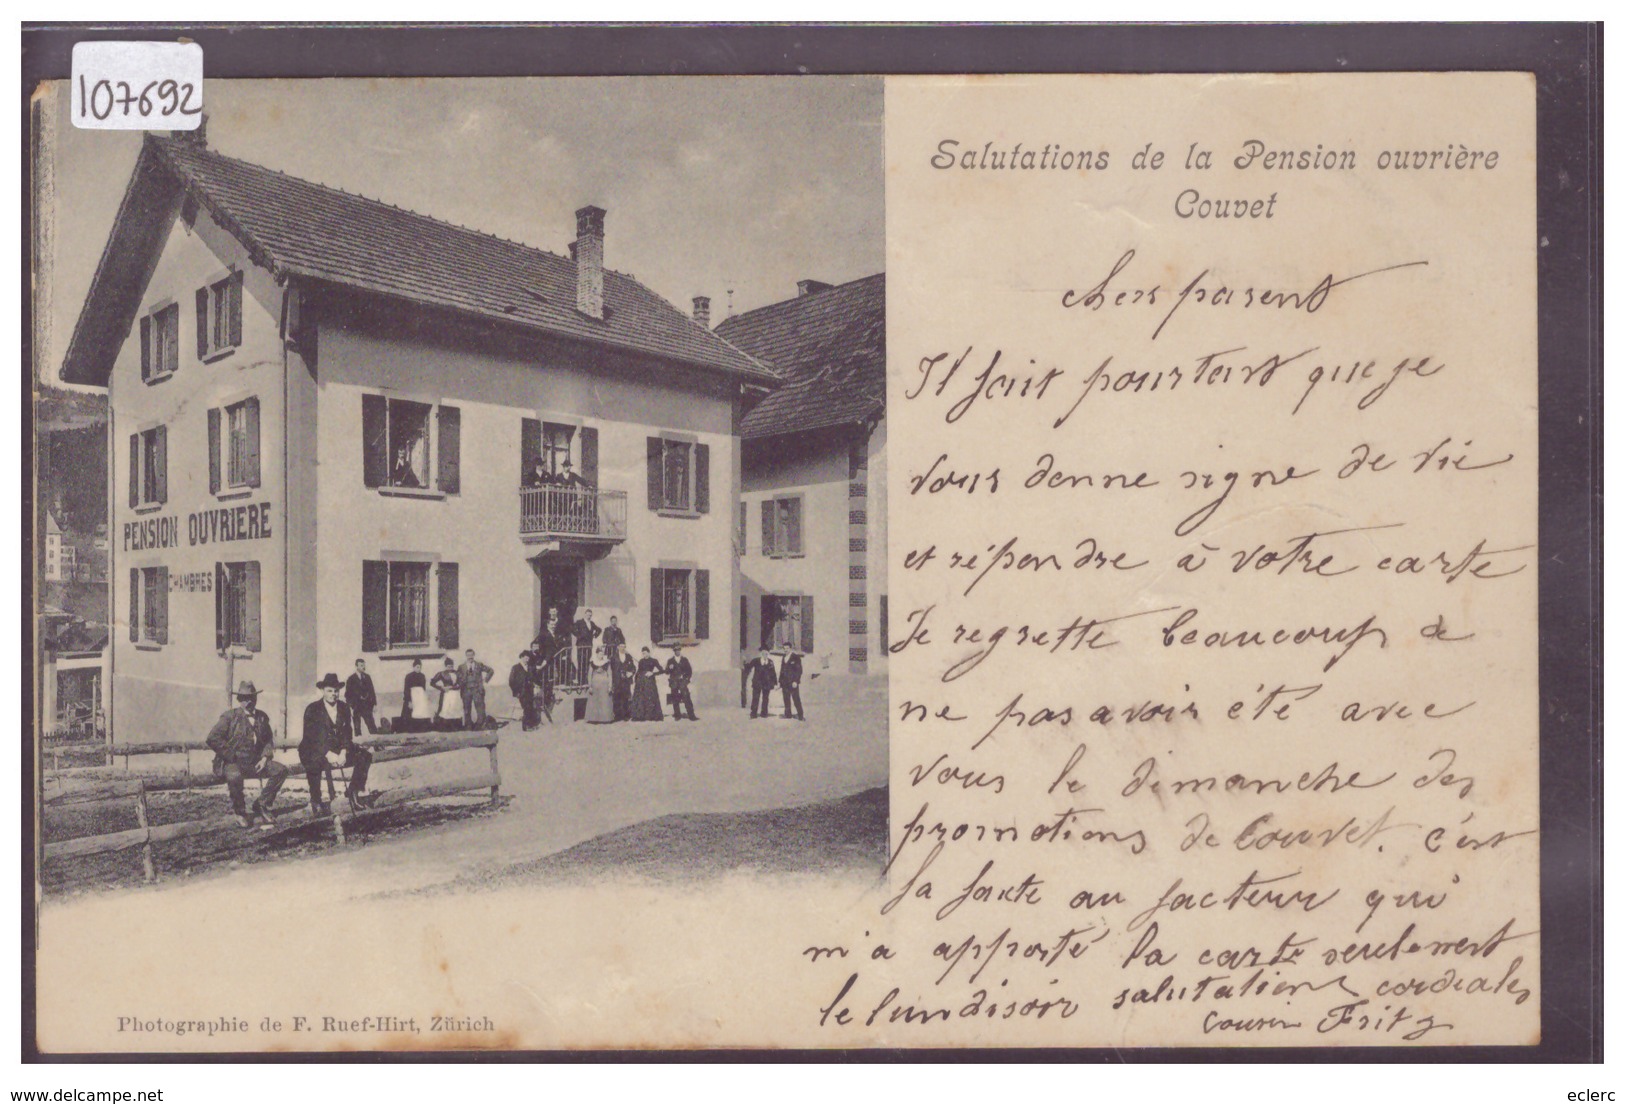 107692
Salutations de la Pension ouvrière
Couvet
PENSION OUVRIERE
CHAMBRES
chers parent
Il fait pourtant que je
vous donne signe de vie
et répondre à votre carte
Je regrette beaucoup de
ne pas avoir été avec
vous le dimanche des
promotions de Couvet. c'est
la faute au facteur qui
m'a apporté la carte seulement
le lundi soir salutations cordiales
Cousin Fritz
Photographie de F. Ruef-Hirt, Zürich
www.delcampe.net
eclerc